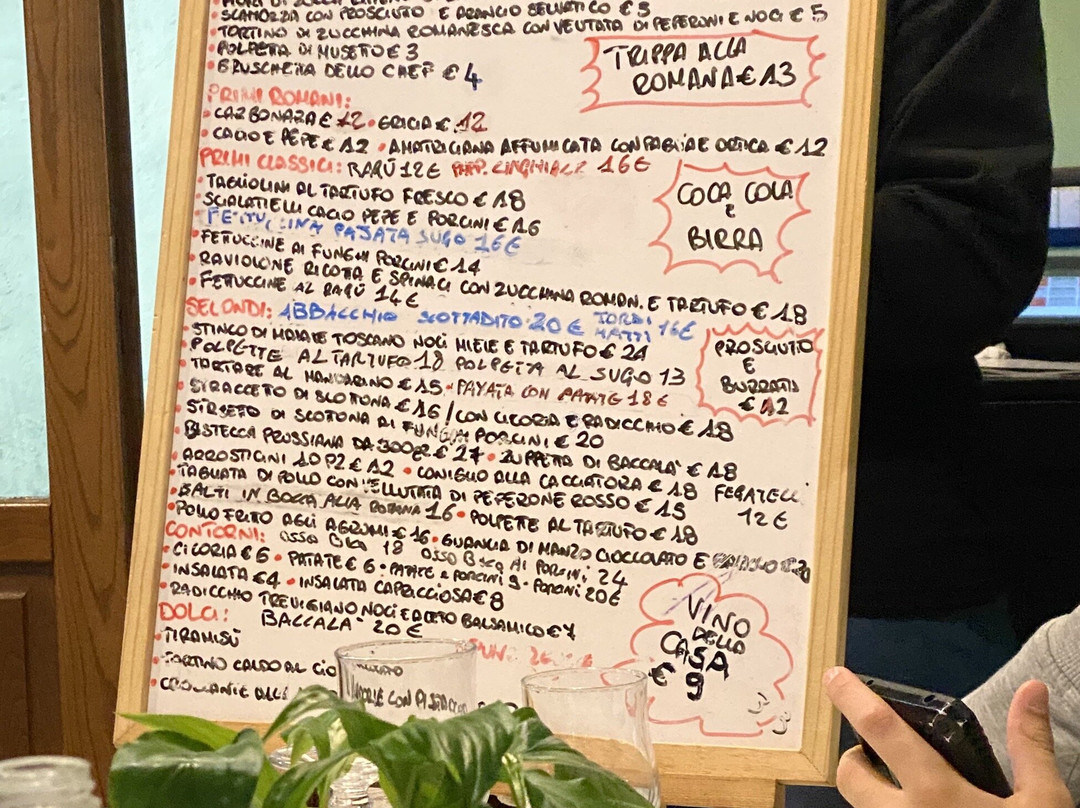 SCAMORZA CON PROSCIUTO E ARANCIO SELVATICO € 5
TORTINO DI ZUCCHINA ROMANESCA CON VEUTATA DI PEPERONI E NOCI € 5
POLPETTA DI MUSETO € 3
BRUSCHETTA DELLO CHEF € 4
TRIPPA ALLA
ROMANA € 13
PRIMI ROMANI:
CARBONARA € 12 • GRICIA € 12
CACIO E PEPE € 12 • AMATRICIANA AFFUMICATA CON PAGLIA E ORTICA € 12
PRIMI CLASSICI: RAGÚ 12 € PAPP. CINGHIALE 16 €
TAGLIOLINI AL TARTUFO FRESCO € 18
SCIALATIELLI CACIO PEPE E PORCINI € 16
FETTUCCINA PAJATA SUGO 16 €
COCA COLA
E
BIRRA
FETUCCINE AI FUNGHI PORCINI € 14
RAVIOLONE RICOTTA E SPINACI CON ZUCCHINA ROMAN. E TARTUFO € 18
FETTUCCINE AL RAGÚ 14 €
SECONDI: ABBACCHIO SCOTTADITO 20 € TORDI MATTI 16 €
STINCO DI MAIALE TOSCANO NOCI MIELE E TARTUFO € 21
POLPETTE AL TARTUFO 18 POLPETTA AL SUGO 13
TARTARE AL MANDARINO € 15 • PAYATA CON PATATE 18 €
PROSCIUTTO
E
BURRATA
€ 12
STRACCETO DI SCOTTONA € 16 / CON CICORIA E RADICCHIO € 18
STRACETO DI SCOTONA AI FUNGHI PORCINI € 20
BISTECCA PRUSSIANA DA 300GR € 27 • ZUPPETTA DI BACCALA' € 18
ARROSTICINI 10 PZ € 12 • CONIGLIO ALLA CACCIATORA € 18 FEGATELLI 12 €
TAGLIATA DI POLLO CON VELLUTATA DI PEPERONE ROSSO € 15
SALTI IN BOCCA ALLA ROMANA 16 • POLPETTE AL TARTUFO € 18
POLLO FRITO AGLI AGRUMI € 16 • GUANCIA DI MANZO CIOCCOLATO E
CONTORNI: OSSO BUCO 18 OSSO BUCO AI PORCINI 24
CICORIA € 6 • PATATE € 6 • PATATE E PORCINI 9 • PORCINI 20 €
INSALATA € 4 • INSALATA CAPRICCIOSA € 8
RADICCHIO TREVIGIANO NOCI E ACETO BALSAMICO € 7
DOLCI: BACCALA' 20 €
TIRAMISÙ
TORTINO CALDO AL CIO
VINO
DELLA
CASA
€ 9
CON PISTACCHIO